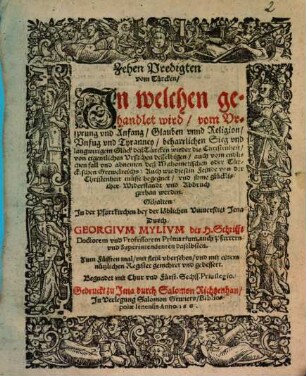 2
Zehen Predigten
vom Türcken/
In welchen ge-
handlet wird/ vom Vr-
sprung vnd Anfang/ Glauben vnnd Religion/
Vnfug vnd Tyranney/ beharlichen Sieg vnd
langwirigem Glück deß Türcken wieder die Christenheit/
von eigentlichen Vrsachen desselbigen/ auch vom endli-
chen fall vnd abnemen deß Mahometischen oder Tür-
ckischen Grewelreichs/ Auch wie diesem Feinde von der
Christenheit müsse begegnet/ vnd ihme glückli-
cher Widerstandt vnd Abbruch
gethan werden.
Gehalten/
In der Pfarrkirchen bey der löblichen Vniversitet Jena
Durch
GEORGIVM MYLIVM der H. Schrifft
Doctorem vnd Professorem Primarium, auch Pfarrern
vnd Superintendenten daselbsten.
Zum Fünfften mal/ mit fleiß vbersehen/ vnd mit einem
nützlichen Register gemehret vnd gebessert.
Begnadet mit Chur vnd Fürst. Sechß. Privilegio.
Gedruckt zu Jena durch Salomon Richtzenhan/
In Verlegung Salomon Gruners/ Biblio-
polae Ienensis Anno